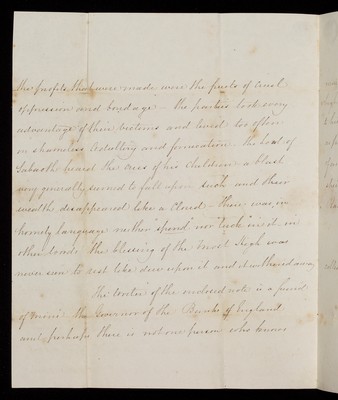 the profits that were made were the fruits of cruel
oppression and bondage – the parties took every
advantage of their victims and lived too often
in shameless Adultery and fornication. the Lord of
Sabaoth heard the cries of his children a blush
very generally seemed to fall upon such and their
wealth disappeared like a Cloud – there was, in
homely language neither spond nor luck in it in
other words the blessing of the Most High was
never seen to rest like dew upon it and it withered away
The writer of the enclosed note is a friend
of mine the Governor of the Bank of England
and perhaps there is not one person who knows